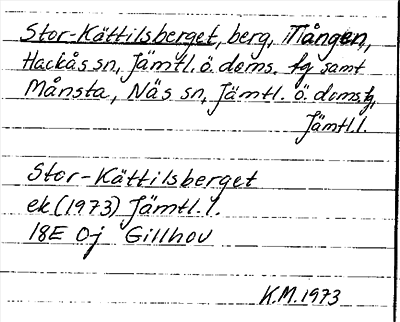 Stor-Kättilsberget, berg, Mången,
Hackås sn, Jämtl. ö. doms. fg samt
Månsta, Näs sn, Jämtl. ö. doms fg,
Jämtl.l.
Stor-Kättilsberget
ek (1973) Jämtl. l.
18E 0j Gillhov
K.M. 1973